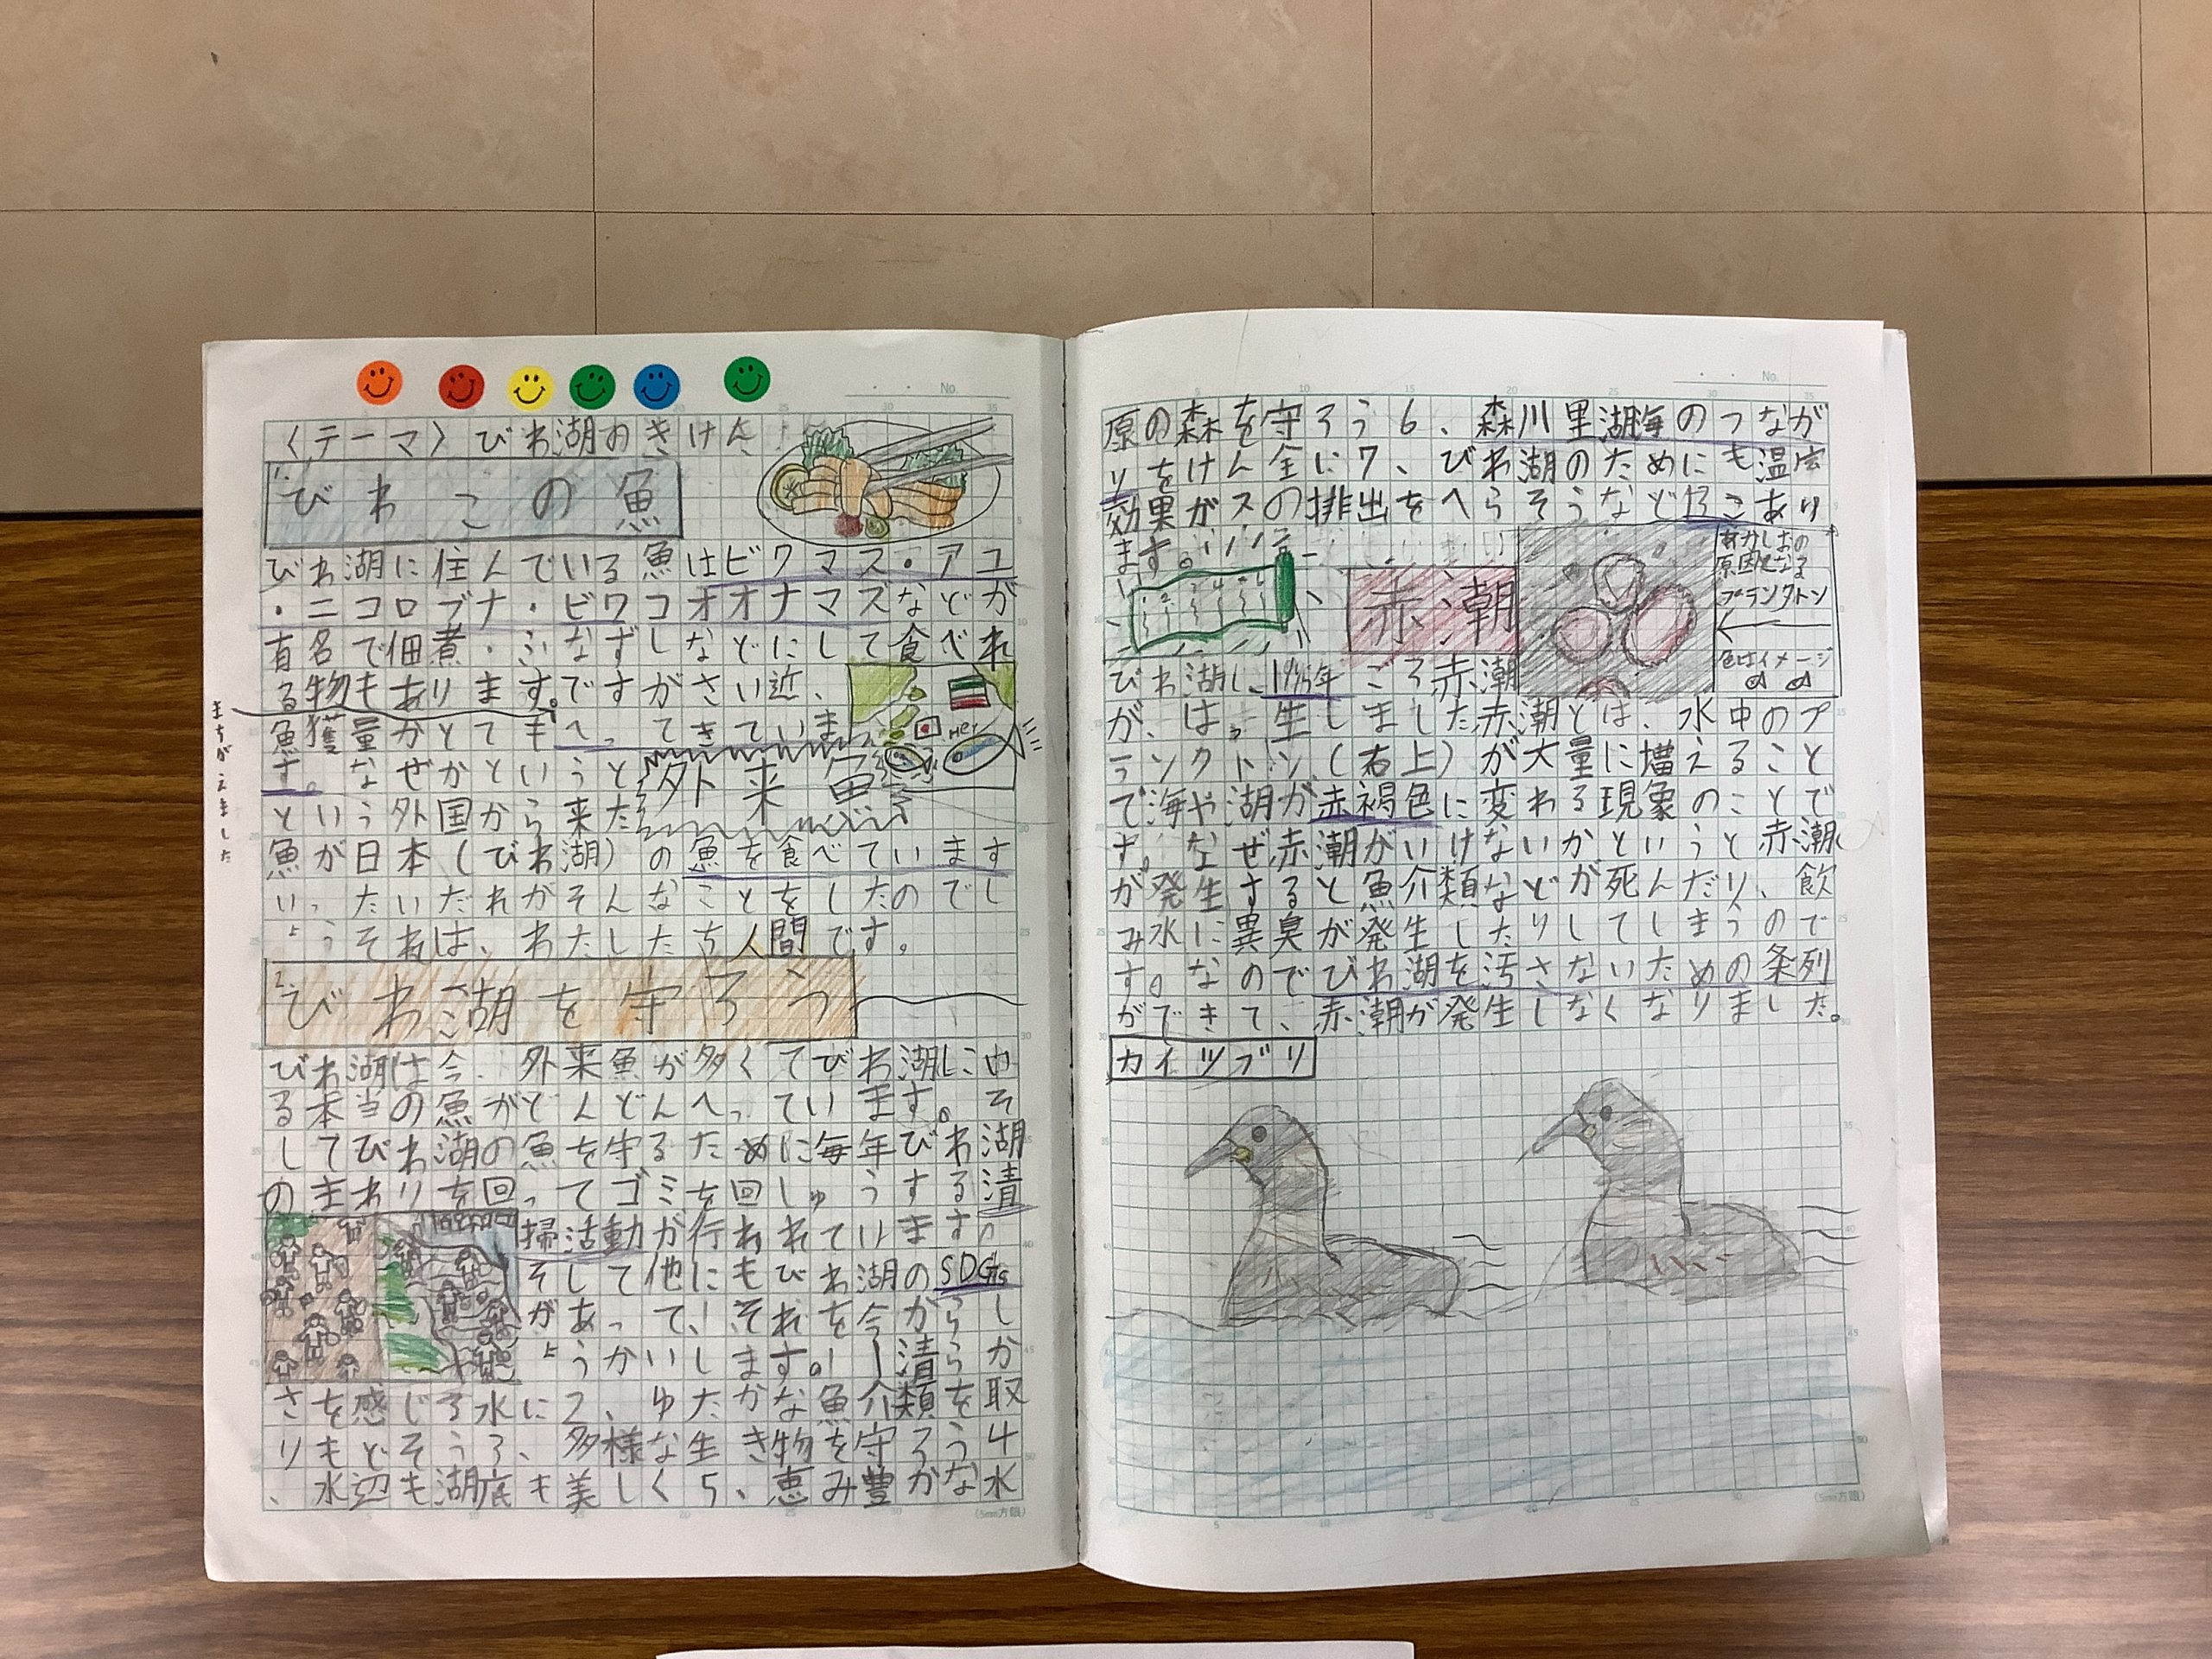 〈テーマ〉びわ湖のきけん
1.びわこの魚
びわ湖に住んでいる魚はビワマス・アユ
・ニゴロブナ・ビワコオオナマズなどが
有名で佃煮・ふなずしなどにして食べれ
る物もあります。ですがさい近、
魚獲量がとてもへってきていま
す。なぜかというと外来魚
という外国から来た
魚が日本(びわ湖)の魚を食べています
いったいだれがそんなことをしたのでし
ょうそれは、わたしたち人間です。
まちがえました
HEY
2.びわこ湖を守ろう
びわ湖は今、外来魚が多くてびわ湖にいる
る本当の魚がどんどんへっています。そ
してびわ湖の魚を守るために毎年びわ湖
のまわりを回ってゴミを回しゅうする清
掃活動が行われています。
そして他にもびわ湖のSDGs
があって、それを今からし
ょうかいします。1清らか
さを感じる水に2、ゆたかな魚介類を取
りもどそう3、多様な生き物を守ろう4
、水辺も湖底も美しく5、恵み豊かな水
原の森を守ろう6、森川里湖海のつなが
りをけん全に7、びわ湖のためにも温室
効果ガスの排出をへらそうなど13こあり
ます。
赤潮
あかしおの
原因となる
プランクトン
色はイメージ
びわ湖に
ごろ赤潮
が、は、生しました赤潮とは、水中のプ
ランクトン(右上)が大量に増えること
で海や湖が赤褐色に変わる現象のことで
す。なぜ赤潮がいけないかというと赤潮
が発生すると魚介類などが死んだり、飲
み水に異臭が発生したりしてしまうので
す。なのでびわ湖を汚さないための条列
ができて、赤潮が発生しなくなりました。
カイツブリ